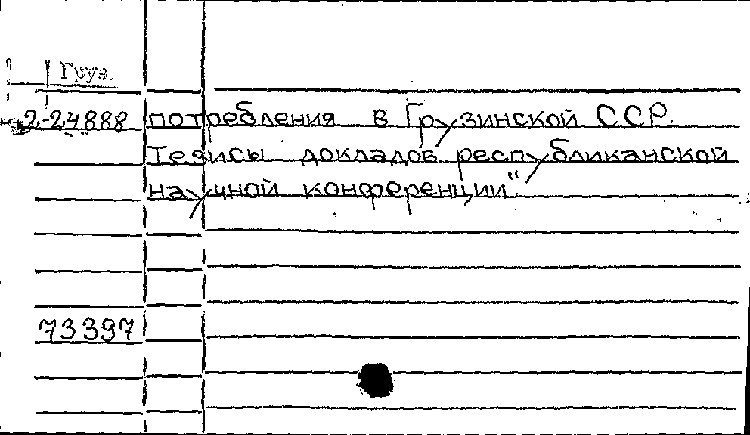 Груз.
2-24888 потребления в Грузинской ССР.
Тезисы докладов республиканской
научной конференции"
73397